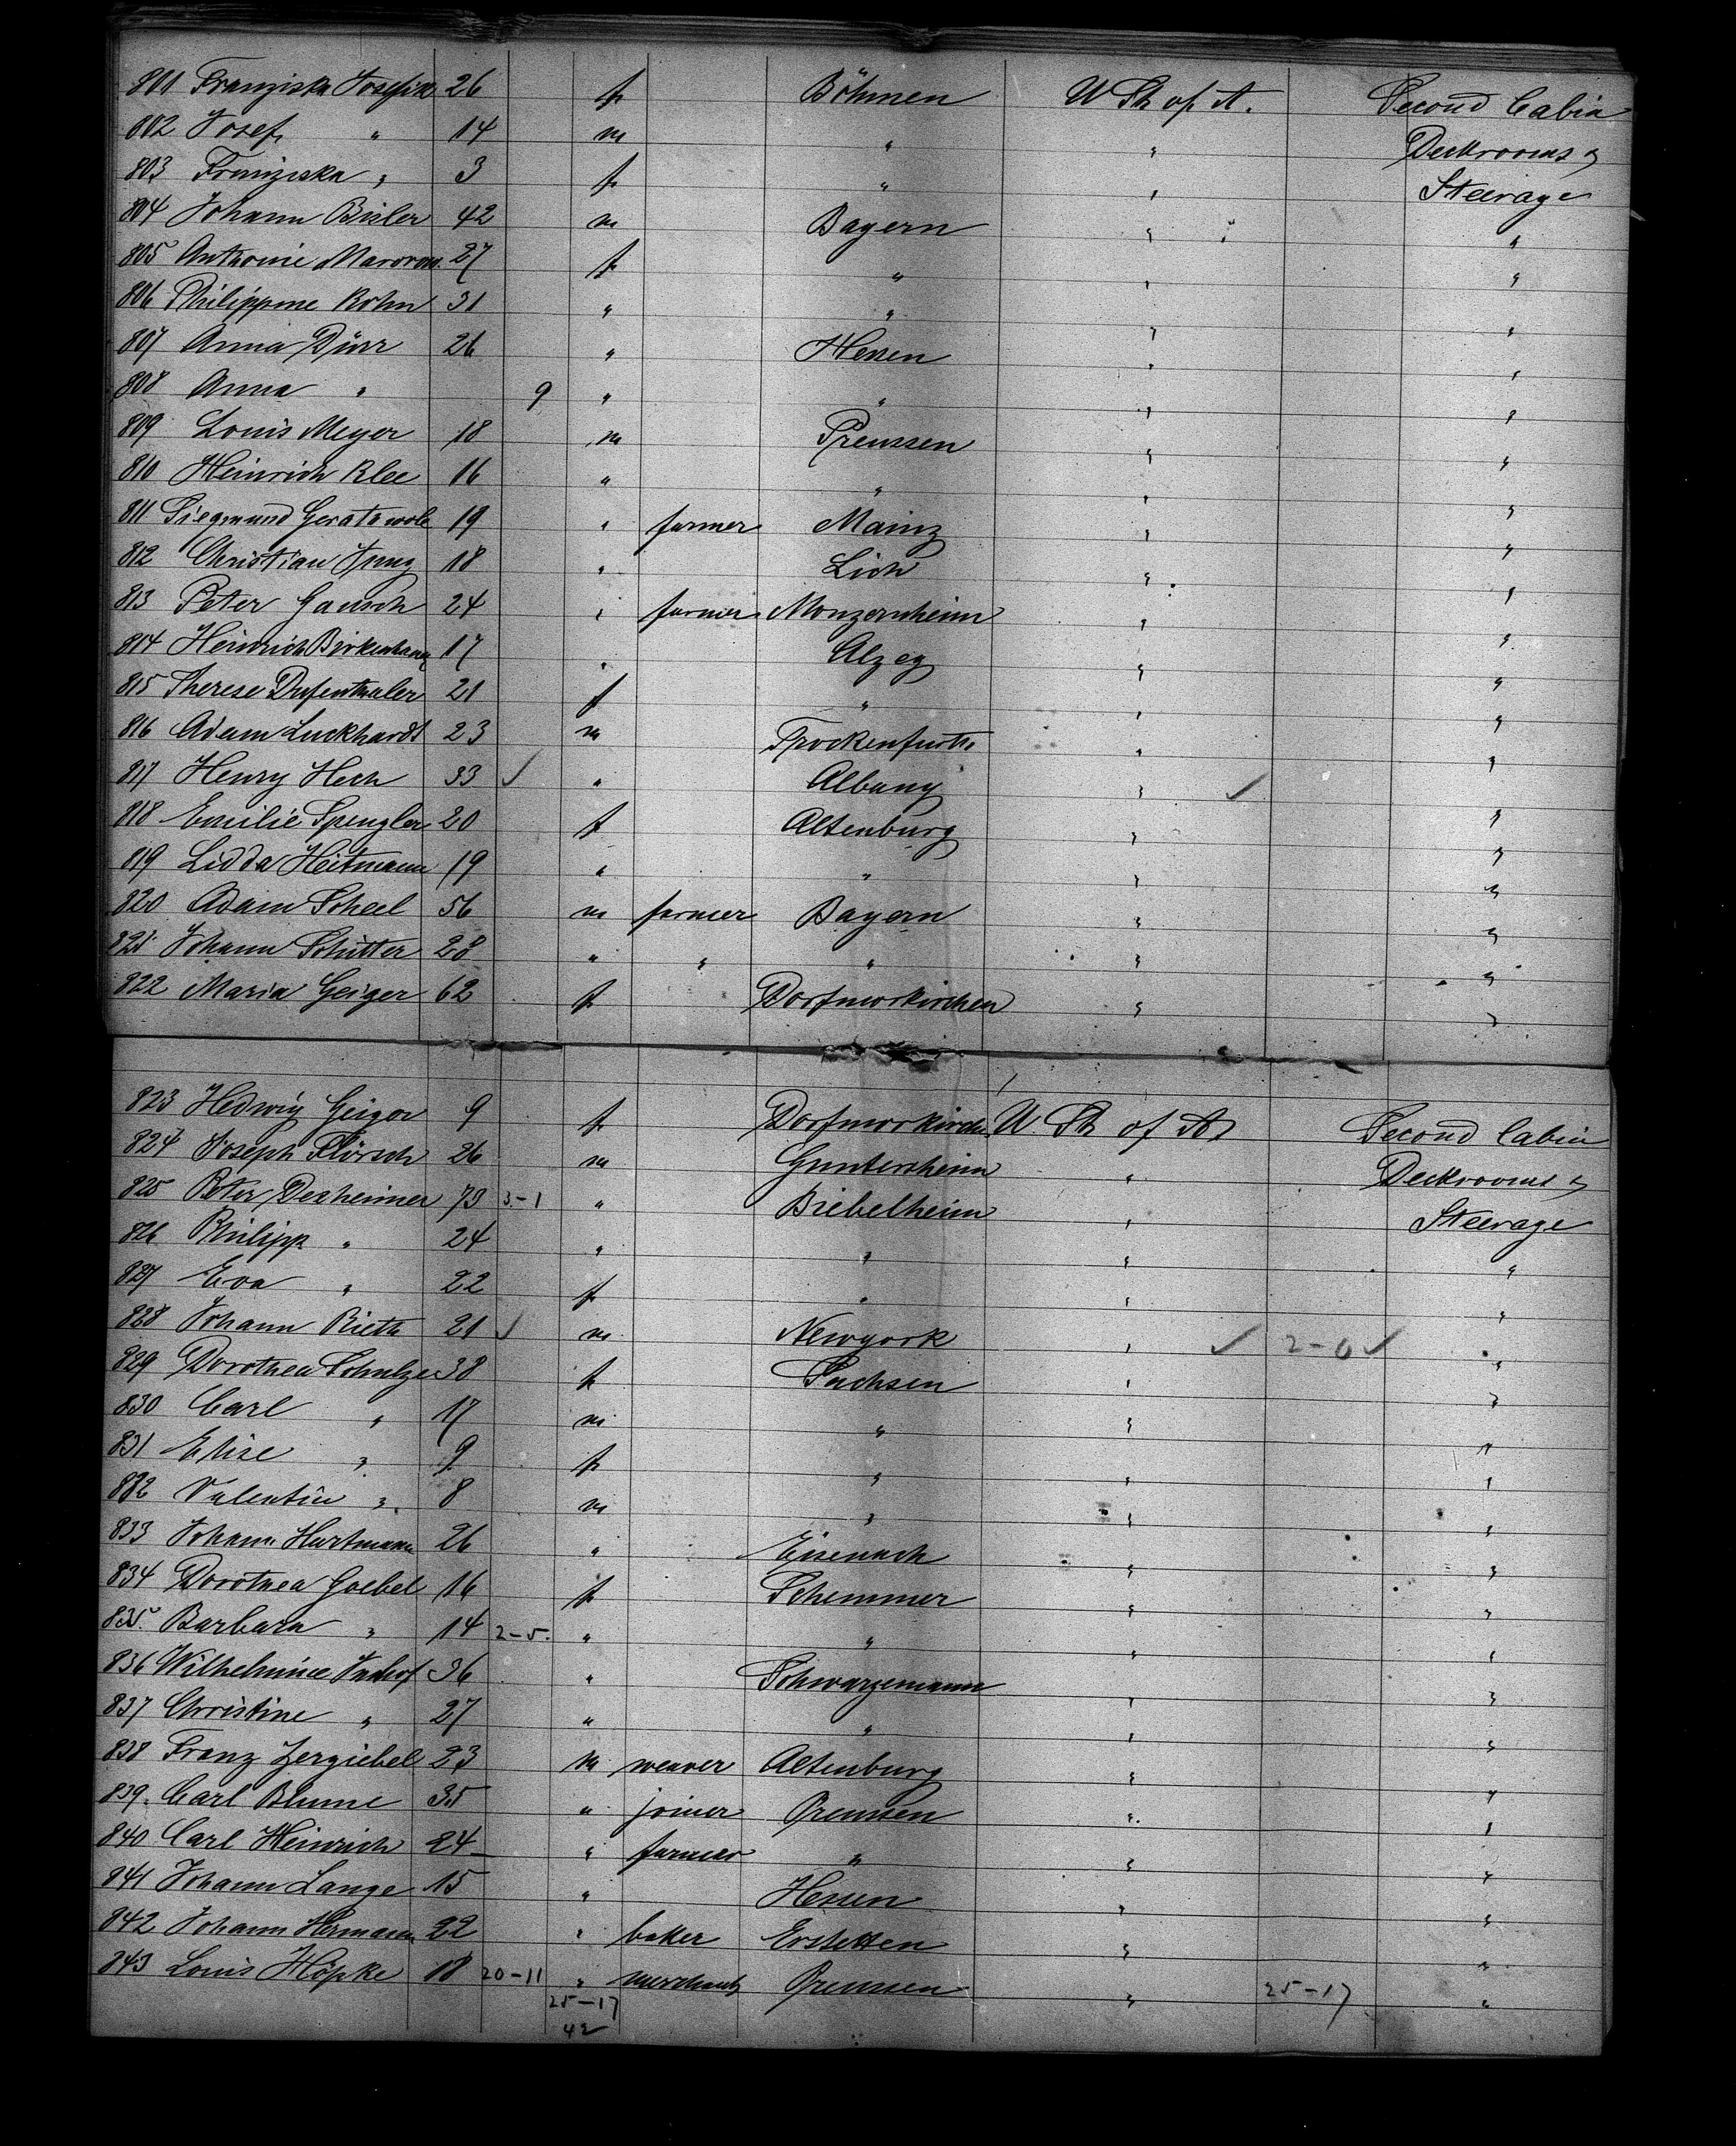 801 Franziska Josefik 26 f Böhmen U St of A. Second Cabin
802 Josef " 14 m " " Deckrooms &
803 Franziska " 3 f " " Steerage
804 Johann Bisler 42 m Bayern " "
805 Antonie 27 f " " "
806 Philippine Kohn 31 " " " "
807 Anna Dürr 26 " Hessen " "
808 Anna " 9 " " " "
809 Louis Meyer 18 m Preussen " "
810 Heinrich Klee 16 " " " "
811 Siegmund 19 " farmer Mainz " "
812 Christian Jung 18 " Lich " "
813 Peter Gausch 24 " farmer Monzernheim " "
814 Heinrich Birkenhauer 17 " Alzey " "
815 Therese 21 f " " "
816 Adam Luckhardt 23 m Trockenfurth " "
817 Henry Hech 33 ✓ " Albany " ✓ "
818 Emilie Spengler 20 f Altenburg " "
819 Lidda Heitmann 19 " " " "
820 Adam Scheel 56 m farmer Bayern " "
821 Johann Schütter 28 " " " " "
822 Maria Geiger 62 f Dorfmerkirchen " "
823 Hedwig Geiger 9 f Dorfmerkirchen U. St of A Second Cabin
824 Joseph Flörsch 26 m Guntersheim " Deckrooms &
825 Peter Dexheimer 79 3-1 " Biebelheim " Steerage
826 Philipp " 24 " " " "
827 Eva " 22 f " " "
828 Johann Rieth 21 ✓ m Newyork " ✓ 2-0 ✓ "
829 Dorothea Schulze 38 f Sachsen " "
830 Carl " 17 m " " "
831 Elise " 9 f " " "
832 Valentin " 8 m " " "
833 Johann Hartmann 26 " Eisenach " "
834 Dorothea Goebel 16 f Schemmer " "
835. Barbara " 14 2-5. " " " "
836 Wilhelmine 36 " Schwarzemann " "
837 Christine " 27 " " " "
838 Franz Zergiebel 23 m weaver Altenburg " "
839. Carl Blume 35 " joiner Preussen " "
840 Carl Heinrich 24 " farmer " " "
841 Johann Lange 15 " Hessen " "
842 Johann Hermann 22 " baker Erstetten " "
843 Louis Höpke 18 20-11 " merchant Preussen " 25-17 "
25-17
42